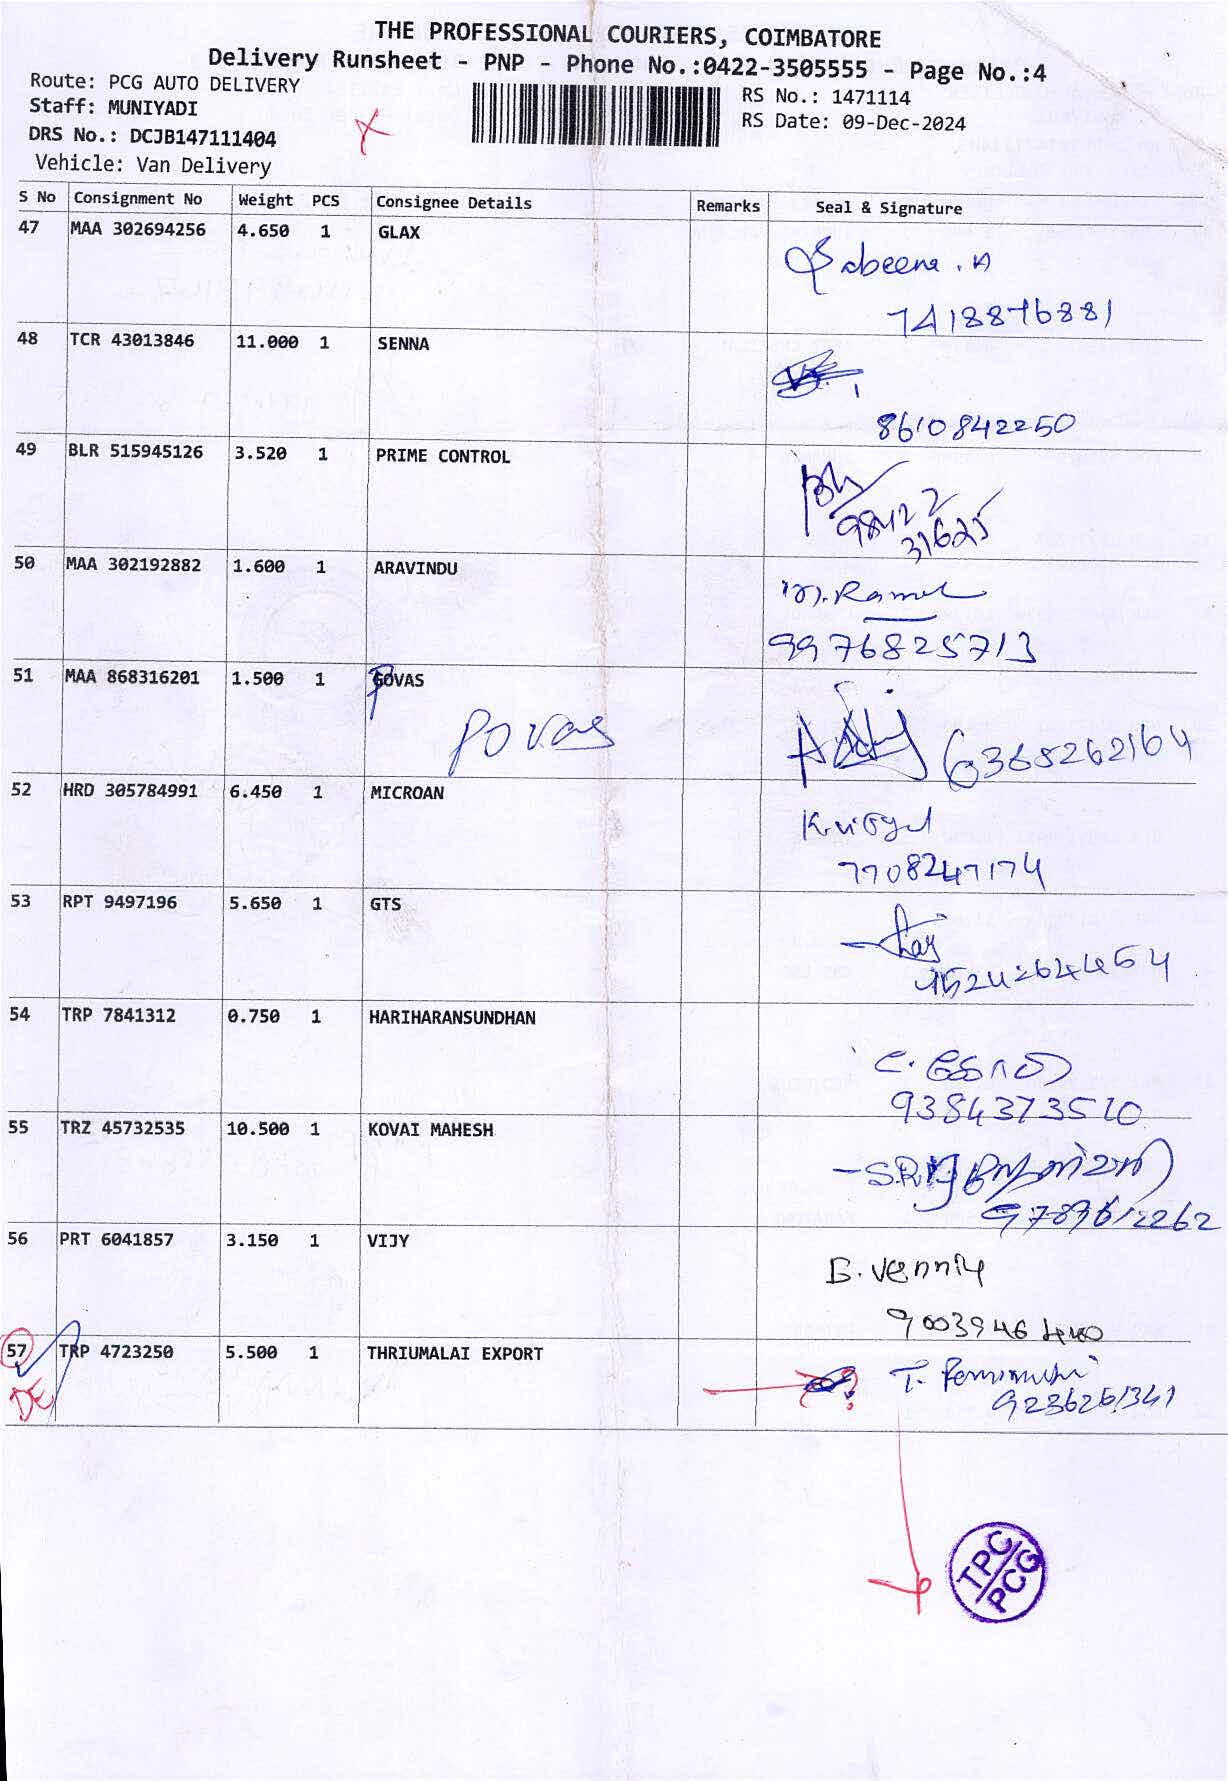 THE PROFESSIONAL COURIERS, COIMBATORE
Delivery Runsheet - PNP - Phone No.:0422-3505555 - Page No.:4
Route: PCG AUTO DELIVERY
Staff: MUNIYADI
DRS No.: DCJB147111404
Vehicle: Van Delivery
RS No.: 1471114
RS Date: 09-Dec-2024
S No Consignment No Weight PCS Consignee Details Remarks Seal & Signature
47 MAA 302694256 4.650 1 GLAX
Sabeena. A
7418876881
48 TCR 43013846 11.000 1 SENNA
8610842250
49 BLR 515945126 3.520 1 PRIME CONTROL
98422
31625
50 MAA 302192882 1.600 1 ARAVINDU
9976825713
51 MAA 868316201 1.500 1 GOVAS
POVAS
6368262164
52 HRD 305784991 6.450 1 MICROAN
7708247174
53 RPT 9497196 5.650 1 GTS
54 TRP 7841312 0.750 1 HARIHARANSUNDHAN
9384373510
55 TRZ 45732535 10.500 1 KOVAI MAHESH
56 PRT 6041857 3.150 1 VIJY
9003946440
57 TRP 4723250 5.500 1 THRIUMALAI EXPORT
DE
TPC
PCG